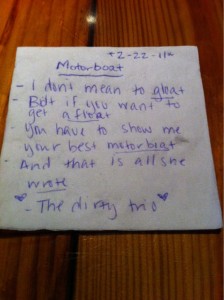 +2-22-11*
Motorboat
- I don't mean to gloat
- But if you want to
get afloat
- You have to show me
your best motorboat
- And that is all she
wrote
"- The dirty trio"